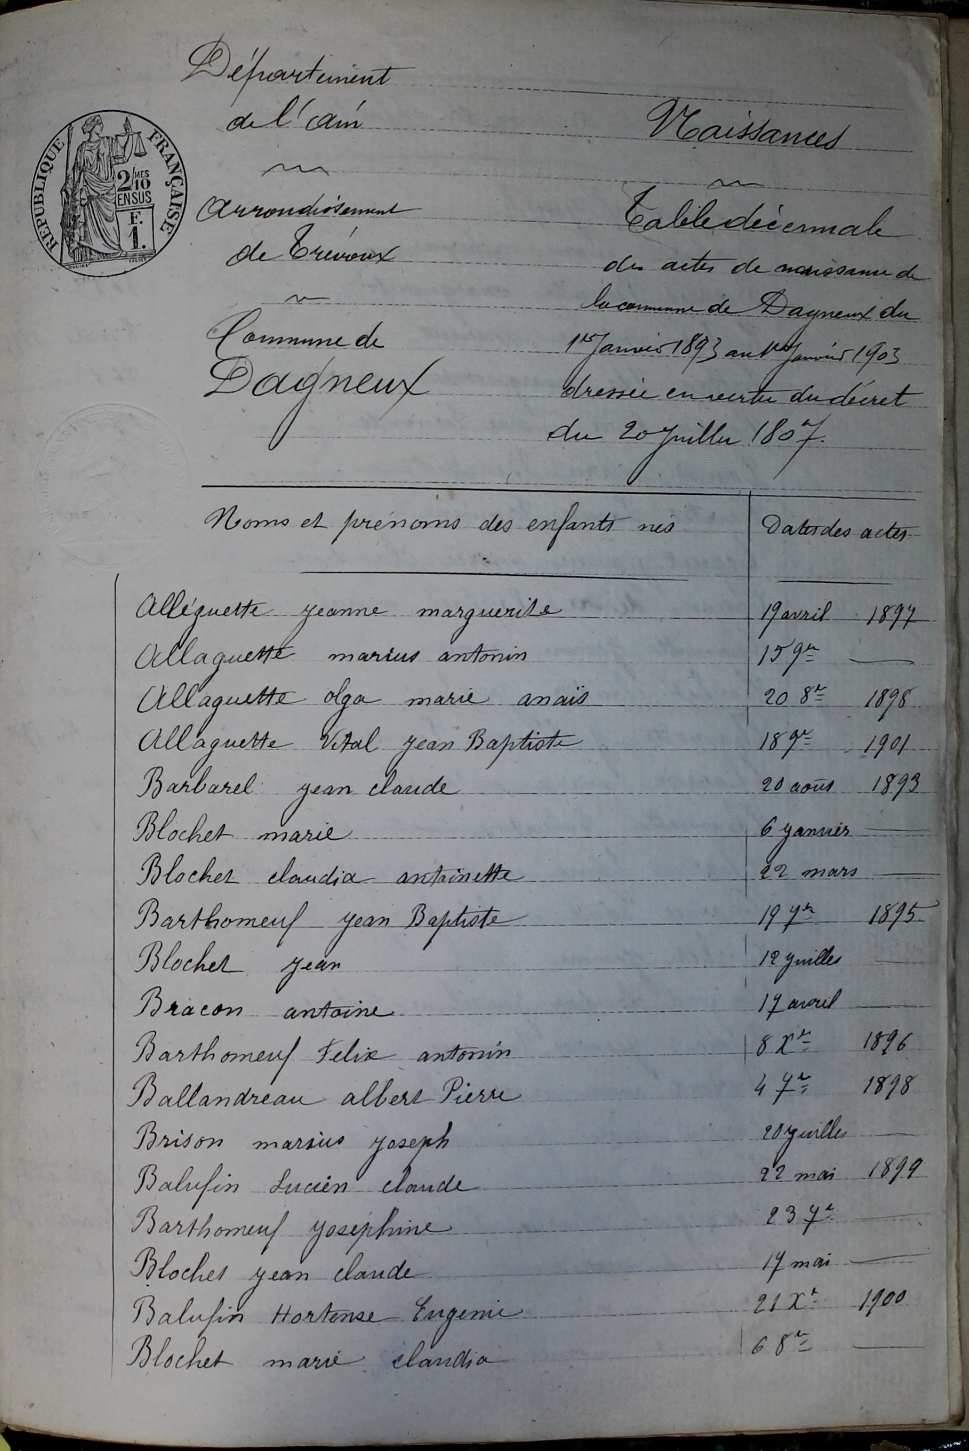 Département
de l'ain
Arrondissement
de Trévoux
Commune de
Dagneux
RÉPUBLIQUE FRANÇAISE
2/10 MES
EN SUS
F.
1.
Naissances
Table décennale
des actes de naissance de
la commune de Dagneux du
1er Janvier 1893 au 1er Janvier 1903
dressée en vertu du décret
du 20 Juillet 1807.
Noms et prénoms des enfants nés Dates des actes
Alléguette Jeanne marguerite 19 avril 1897
Allaguette marius antonin 15 9re —
Allaguette olga marie anaïs 20 8re 1898
Allaguette Vital Jean Baptiste 18 9re 1901
Barbarel Jean claude 20 août 1893
Blochet marie 6 Janvier —
Blochet claudia antoinette 22 mars —
Barthomeuf Jean Baptiste 19 7re 1895
Blochet Jean 12 Juillet —
Bracon antoine 17 avril —
Barthomeuf Felix antonin 8 Xre 1896
Ballandreau albert Pierre 4 7re 1898
Brison marius Joseph 20 Juillet —
Balufin Lucien claude 22 mai 1899
Barthomeuf Joséphine 23 7re —
Blochet Jean claude 17 mai —
Balufin Hortense Eugenie 21 Xre 1900
Blochet marie claudia 6 8re —